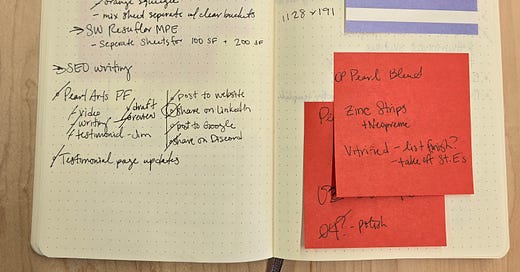 orange squeegee
- mix sheet seperate w/ clear buckets
→ SW Resuflor MPE
- Seperate sheets for 100 SF + 200 SF
→ SEO writing
Pearl Arts PF
video
writing
testimonial - Jim
draft
reviews
post to website
share on LinkedIn
post to Google
share on Discord
Testimonial page updates
1128 x 191
Pearl Blend
Zinc Strips
+ Neoprene
Vitrified - list finish?
- take off St. Es
- polish